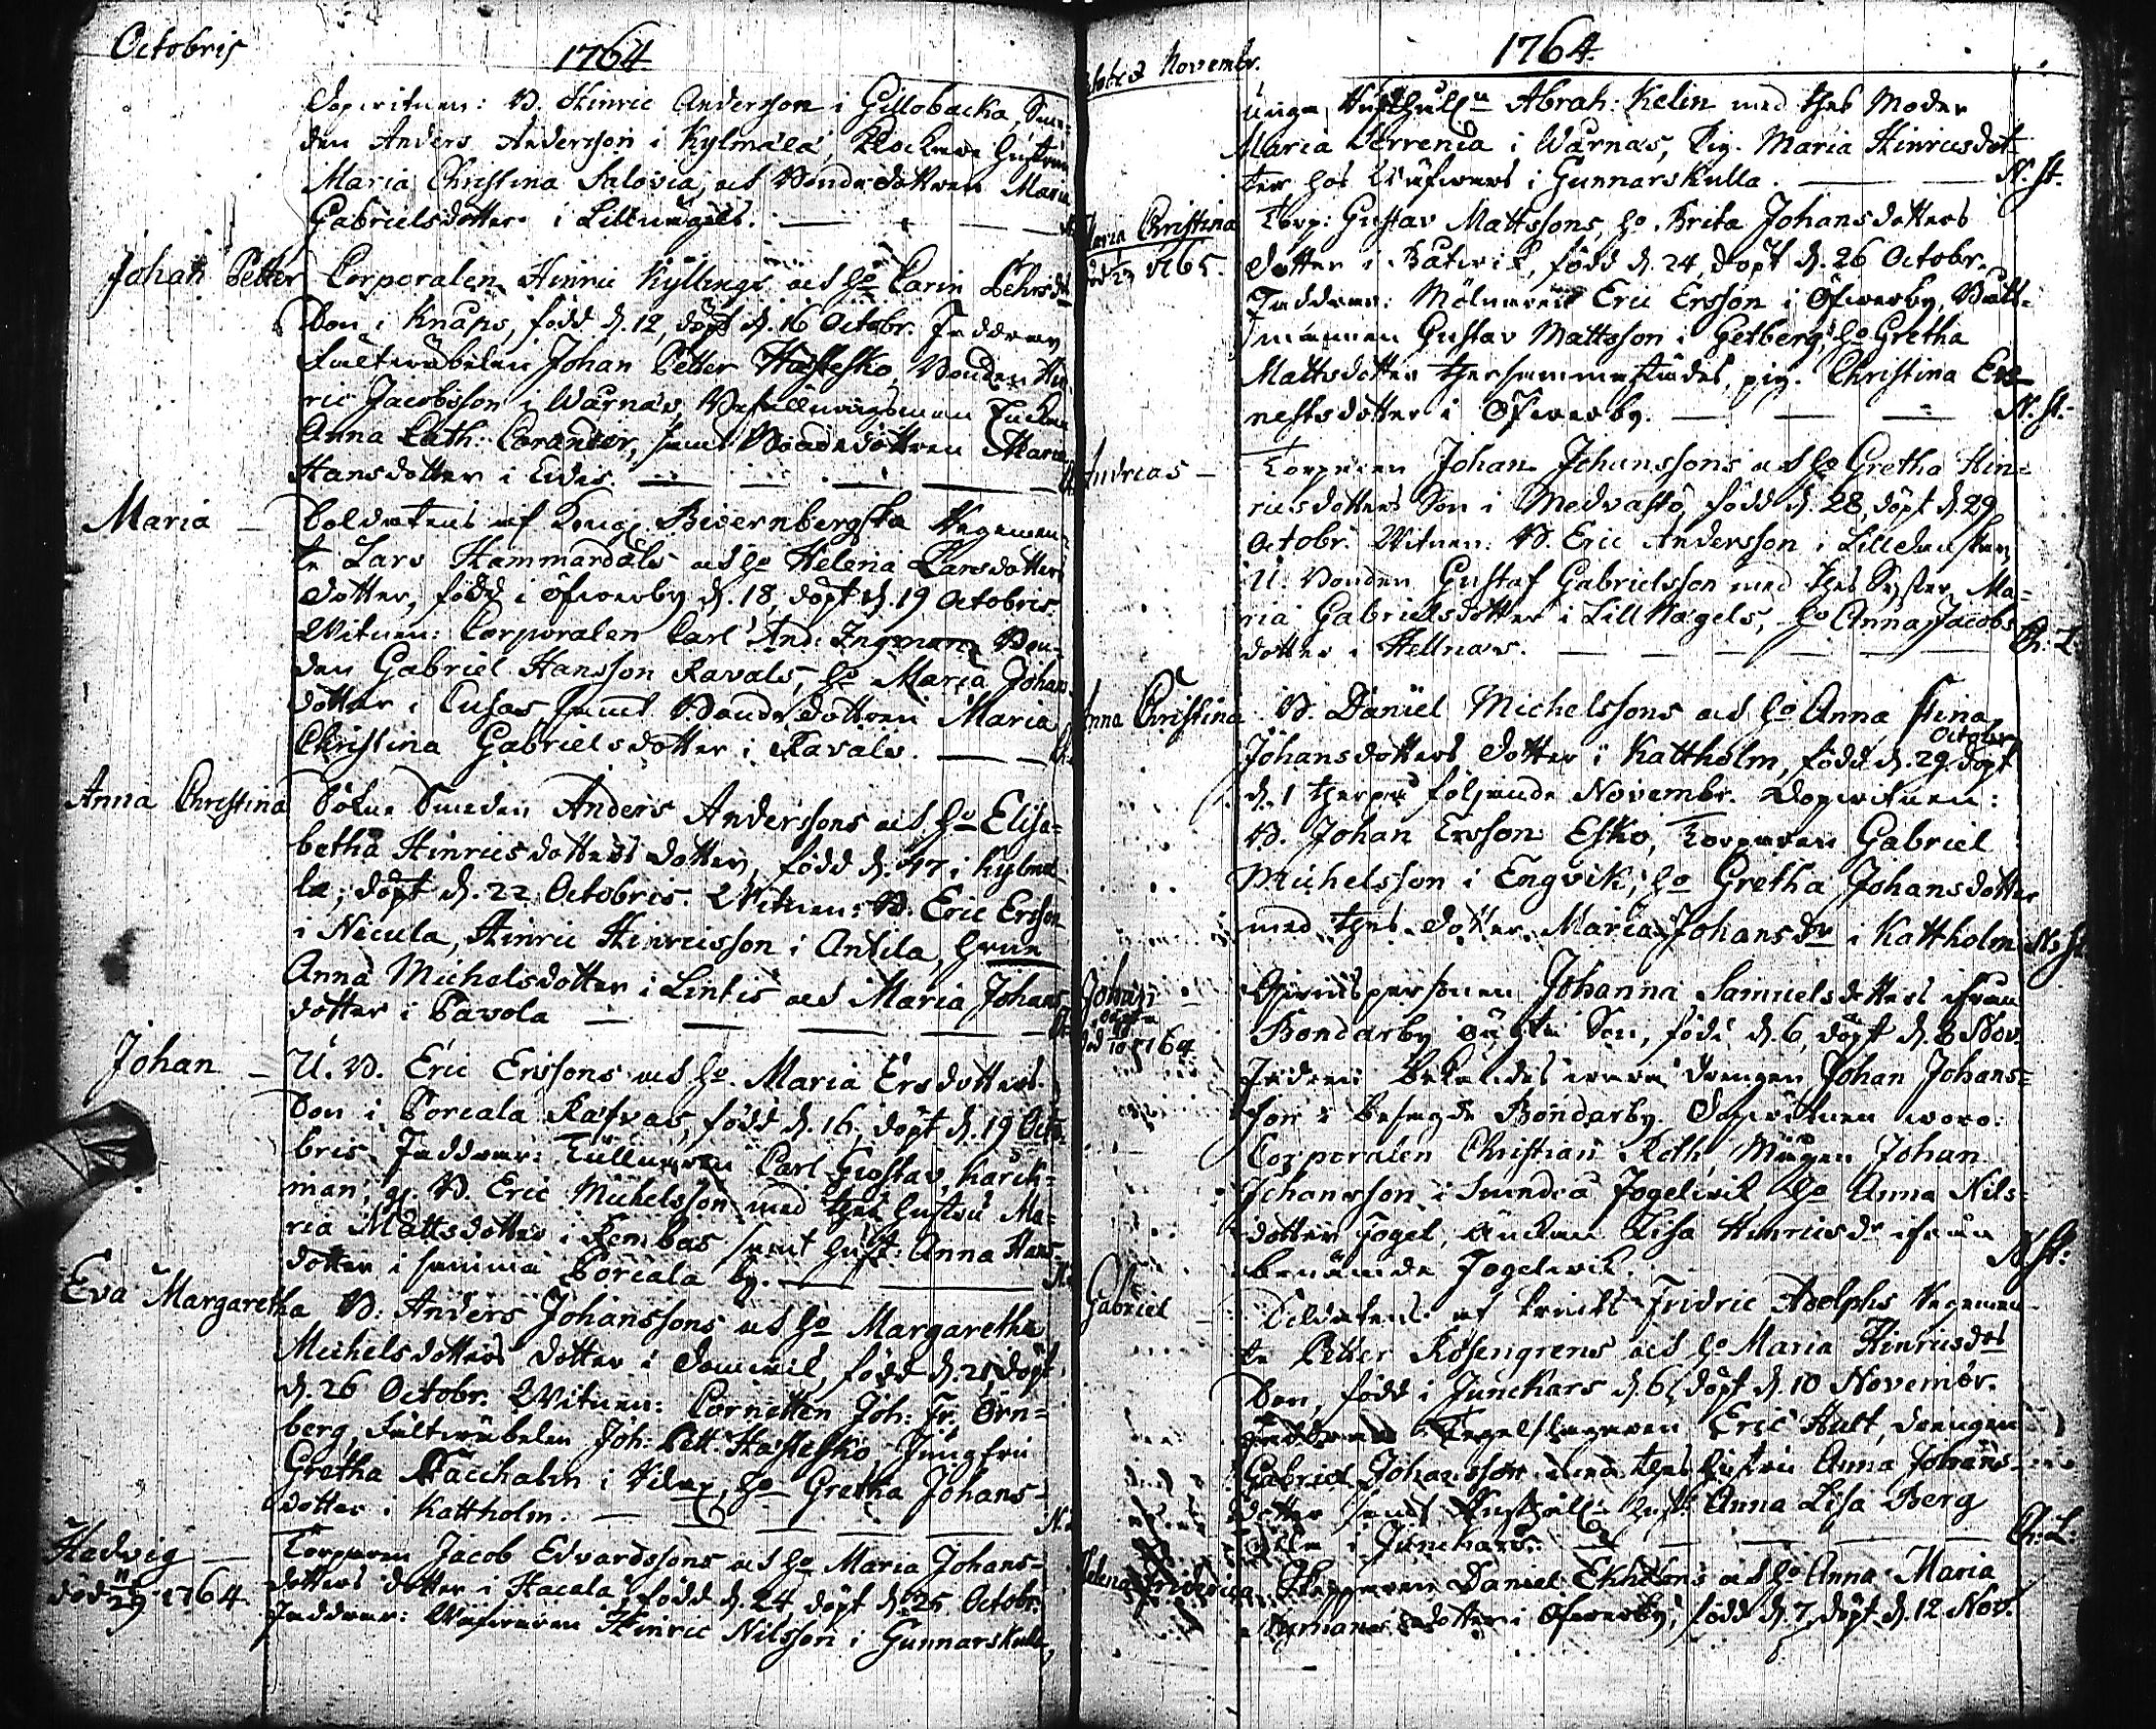 Octobris
1764
Dopwitnen: B. Hinric Andersson i Gillobacka, Sme-
den Anders Andersson i Kylmälä, Klockare hustrun
Maria Christina Salovia, ach Bondedottren Maria
Gabrielsdotter i Lillnägels.
Johan Petter
Corporalen Hinric Kyllings ach ho Carin Pehrsd:
Son i Knaps, född d. 12, döpt d. 16 Octobr. Faddrar
Fältwäbelen Johan Petter Hästesko, Bonden Hin
ric Jacobsson i Warnäs, Enckan
Anna Cath: Corander, samt Bondedottren Maria
Hansdotter i Eides.
Maria
Soldatens af Kongl Biörnbergska Regemen-
te Lars Hammardals ach ho Helena Larsdotters
dotter, född i öfwerby d. 18, döpt d. 19 Octobris.
Witnen: Corporalen Carl And: Ingman, Bon-
den Gabriel Hansson Ravals, ho Maria Johans
dotter i Cusas samt Bondedottren Maria
Christina Gabrielsdotter i Ravals.
Anna Christina
Sokne Smeden Anders Anderssons ach ho Elisa-
betha Hinricsdotters dotter, född d. 17 i Kylmä
lä, döpt d. 22 Octobris. Witnen: B. Eric Ersson
i Nicula, Hinric Hinricsson i Antila, hrun
Anna Michelsdotter i Lintis ach Maria Johans
dotter i Pavola
Johan
U. B. Eric Erssons ach ho. Maria Ersdotters
Son i Porcala Räfvas, född d. 16, döpt d. 19 Octo-
bris. Faddrar: Tullnären Carl Gustav Karck-
man, g. B. Eric Michelsson med thes hustru Ma-
ria Mattsdotter i Rembas samt hust: Anna Hans-
dotter i samma Porcala by.
Eva Margaretha
B. Anders Johanssons ach ho Margaretha
Michelsdotters dotter i Damwik, född d. 21, döpt
d. 26 Octobr. Witnen: Cornetten Joh: Fr. Örn-
berg, Fältwäbelen Joh: Pett. Hästesko, Jungfru
Gretha i ho Gretha Johans-
dotter i Kattholm.
Hedvig
död 29/11 1764.
Torparen Jacob Edvardssons ach ho Maria Johans-
dotters dotter i Hacala, född d. 24 döpt d. 25 Octobr.
Faddrar: Wäfwaren Hinric Nilsson i Gunnarskulla,
Novembr.
1764.
unga Abrah: Kelin med thes Moder
Maria Serrenia i Warnäs, Pig. Maria Hinricsdot-
ter hos Wäfwars i Gunnarskulla. N. st.
Maria Christina
1765.
Torp: Gustav Mattssons, ho. Brita Johansdotters
dotter i Båtwik, född d. 24, döpt d. 26 Octobr.
Faddrar: Mölnaren Eric Ersson i Öfwerby, Båts-
mannen Gustav Mattsson i Getberg, ho Gretha
Mattsdotter thersammastädes, pig. Christina Er-
nestsdotter i Öfwerby. N. st.
Andreas
Torparen Johan Johanssons ach ho Gretha Hin-
ricsdotters Son i Medvastö, född d. 28, döpt d. 29
Octobr. Witnen: B. Eric Andersson i
U. Bonden Gustaf Gabrielsson med thes Syster Ma-
ria Gabrielsdotter i Lill Nägels, ho Anna Jacobs
dotter i Hellnäs. Ch: L.
Anna Christina
B. Daniel Michelssons ach ho Anna Stina
Octobr
Johansdotters dotter i Kattholm, född d. 29. döpt
d. 1 therpå följande Novembr. Dopwitnen:
B. Johan Ersson Esko, Torparen Gabriel
Michelsson i Engvik, ho Gretha Johansdotter
med thes dotter Maria Johansdr i Kattholm N. st.
Johan
oägta
död 1764.
Qwinspersonen Johanna Samuelsdotters ifrån
Bondarby oägta Son, född d. 6, döpt d. 8 Nov.
Fadren bekändes wara drengen Johan Johans-
son i besagde Bondarby. Dopwitnen woro:
Corporalen Christian Roth, Mågen Johan
Johansson i Smedsa Fogelwik, ho Anna Nils-
dotter Fogel, änckan Lisa Hinricsdr ifrån
benämde Fogelwik. N. st:
Gabriel
Soldatens af Prints Fridric Adolphs Regemen-
te Petter Rosengrens ach ho Maria Hinricsdrs
Son, född i Junckars d. 6, döpt d. 10 Novembr.
Faddrar Tegelslagaren Eric Hult, drengen
Gabriel Johansson med thes hustru Anna Johans-
dotter samt Anna Lisa Berg
i Junckars. Ch: L:
Helena Fridrica
Skepparen Daniel Ekholms ach ho Anna Maria
dotter i Öfwerby, född d. 7, döpt d. 12 Nov.